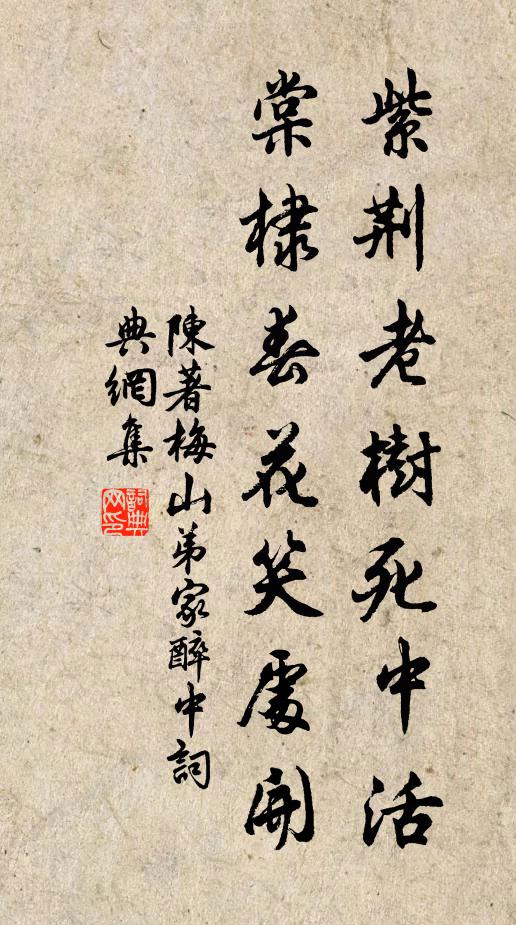 紫荆老樹死中活
棠棣春花笑處開
陳著梅山弟家醉中詞
典網集
詞典網印